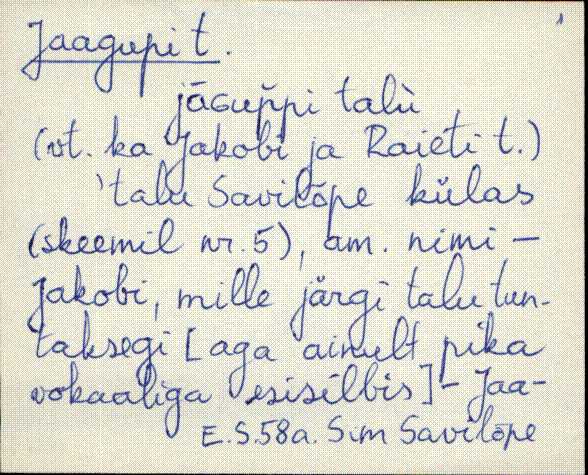 1
Jaagupi t.
jāɢup̆pi talù
(vt. ka Jakobi ja Raieti t.)
'talu Savilõpe külas
(skeemil nr. 5), am. nimi –
Jakobi, mille järgi talu tun-
taksegi [aga ainult pika
vokaaliga esisilbis] – Jaa-
E.S. 58a. Sim Savilõpe